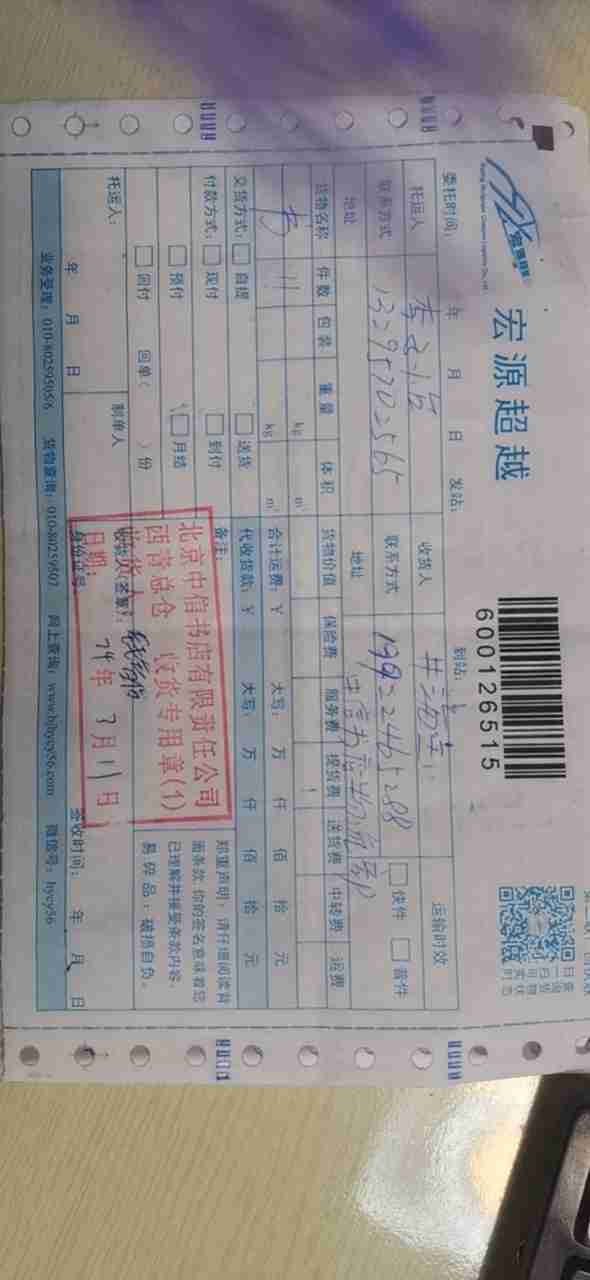 宏源超越
600126515
委托时间： 年 月 日 发站： 到站：
托运人 收货人 运输时效
联系方式 13295702565 联系方式 19922465288 快件 普件
地址 地址 中信书店
货物名称 件数 包装 重量 体积 货物价值 保险费 服务费 提货费 送货费 中转费 运费
书 11 kg m³
kg m³ 合计运费：￥ 大写： 万 仟 佰 拾 元
交货方式： 自提 送货 代收货款：￥ 大写： 万 仟 佰 拾 元
付款方式： 现付 到付 备注：
预付 月结
回付 回单（ ）份
郑重声明：请仔细阅读背
面条款，你的签名意味着您
已理解并接受条款内容。
易碎品：破损自负。
北京中信书店有限责任公司
西营总仓 收货专用章(1)
日期： 24年 3月11日
托运人： 制单人 收货人(签章)：
年 月 日 身份证号： 签收时间： 年 月 日
业务受理：010-80259505/6 货物查询：010-80259507 网上查询：www.bjhycy56.com 微信号：hycy56